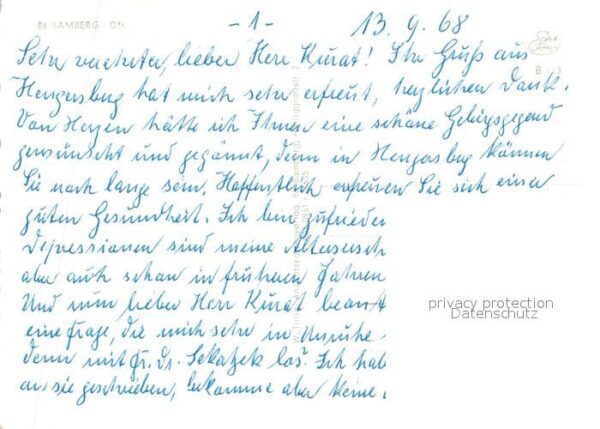 86 BAMBERG Ofr.
- 1 - 13. 9. 68
Sehr verehrter, lieber Herr Kurat! Ihr Gruß aus
Hengersberg hat mich sehr erfreut, herzlichen Dank.
Von Herzen hätte ich Ihnen eine schöne Gebirgsgegend
gewünscht und gegönnt, denn in Hengersberg können
Sie noch lange sein. Hoffentlich erfreuen Sie sich einer
guten Gesundheit. Ich bin zufrieden
Depressionen sind meine
aber auch schon in früheren Jahren
Und nun lieber Herr Kurat
eine Frage, die mich sehr in Unruhe
denn mit Fr. Dr. los? Ich hab
an sie geschrieben, bekomme aber keine
privacy protection
Datenschutz